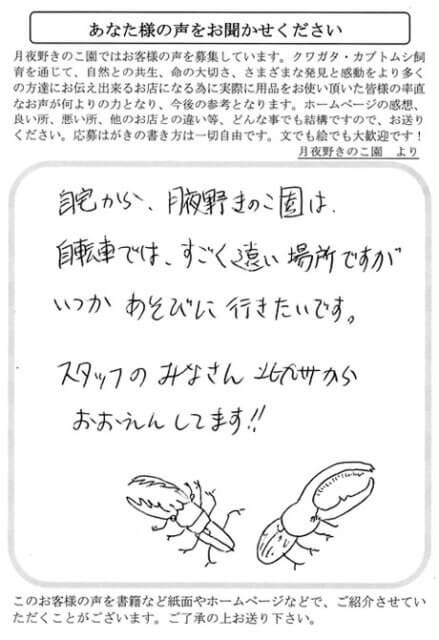 あなた様の声をお聞かせください
月夜野きのこ園ではお客様の声を募集しています。クワガタ・カブトムシ飼
育を通じて、自然との共生、命の大切さ、さまざまな発見と感動をより多く
の方達にお伝え出来るお店になる為に実際に用品をお使い頂いた皆様の率直
なお声が何よりの力となり、今後の参考となります。ホームページの感想、
良い所、悪い所、他のお店との違い等、どんな事でも結構ですので、お送り
ください。応募はがきの書き方は一切自由です。文でも絵でも大歓迎です！
月夜野きのこ園　より
自宅から、月夜野きのこ園は、
自転車では、すごく遠い場所ですが
いつか あそびに 行きたいです。
スタッフの みなさん 北九州から
おおうえんしてます!!
このお客様の声を書籍など紙面やホームページなどで、ご紹介させてい
ただくことがございます。ご了承の上お送り下さい。